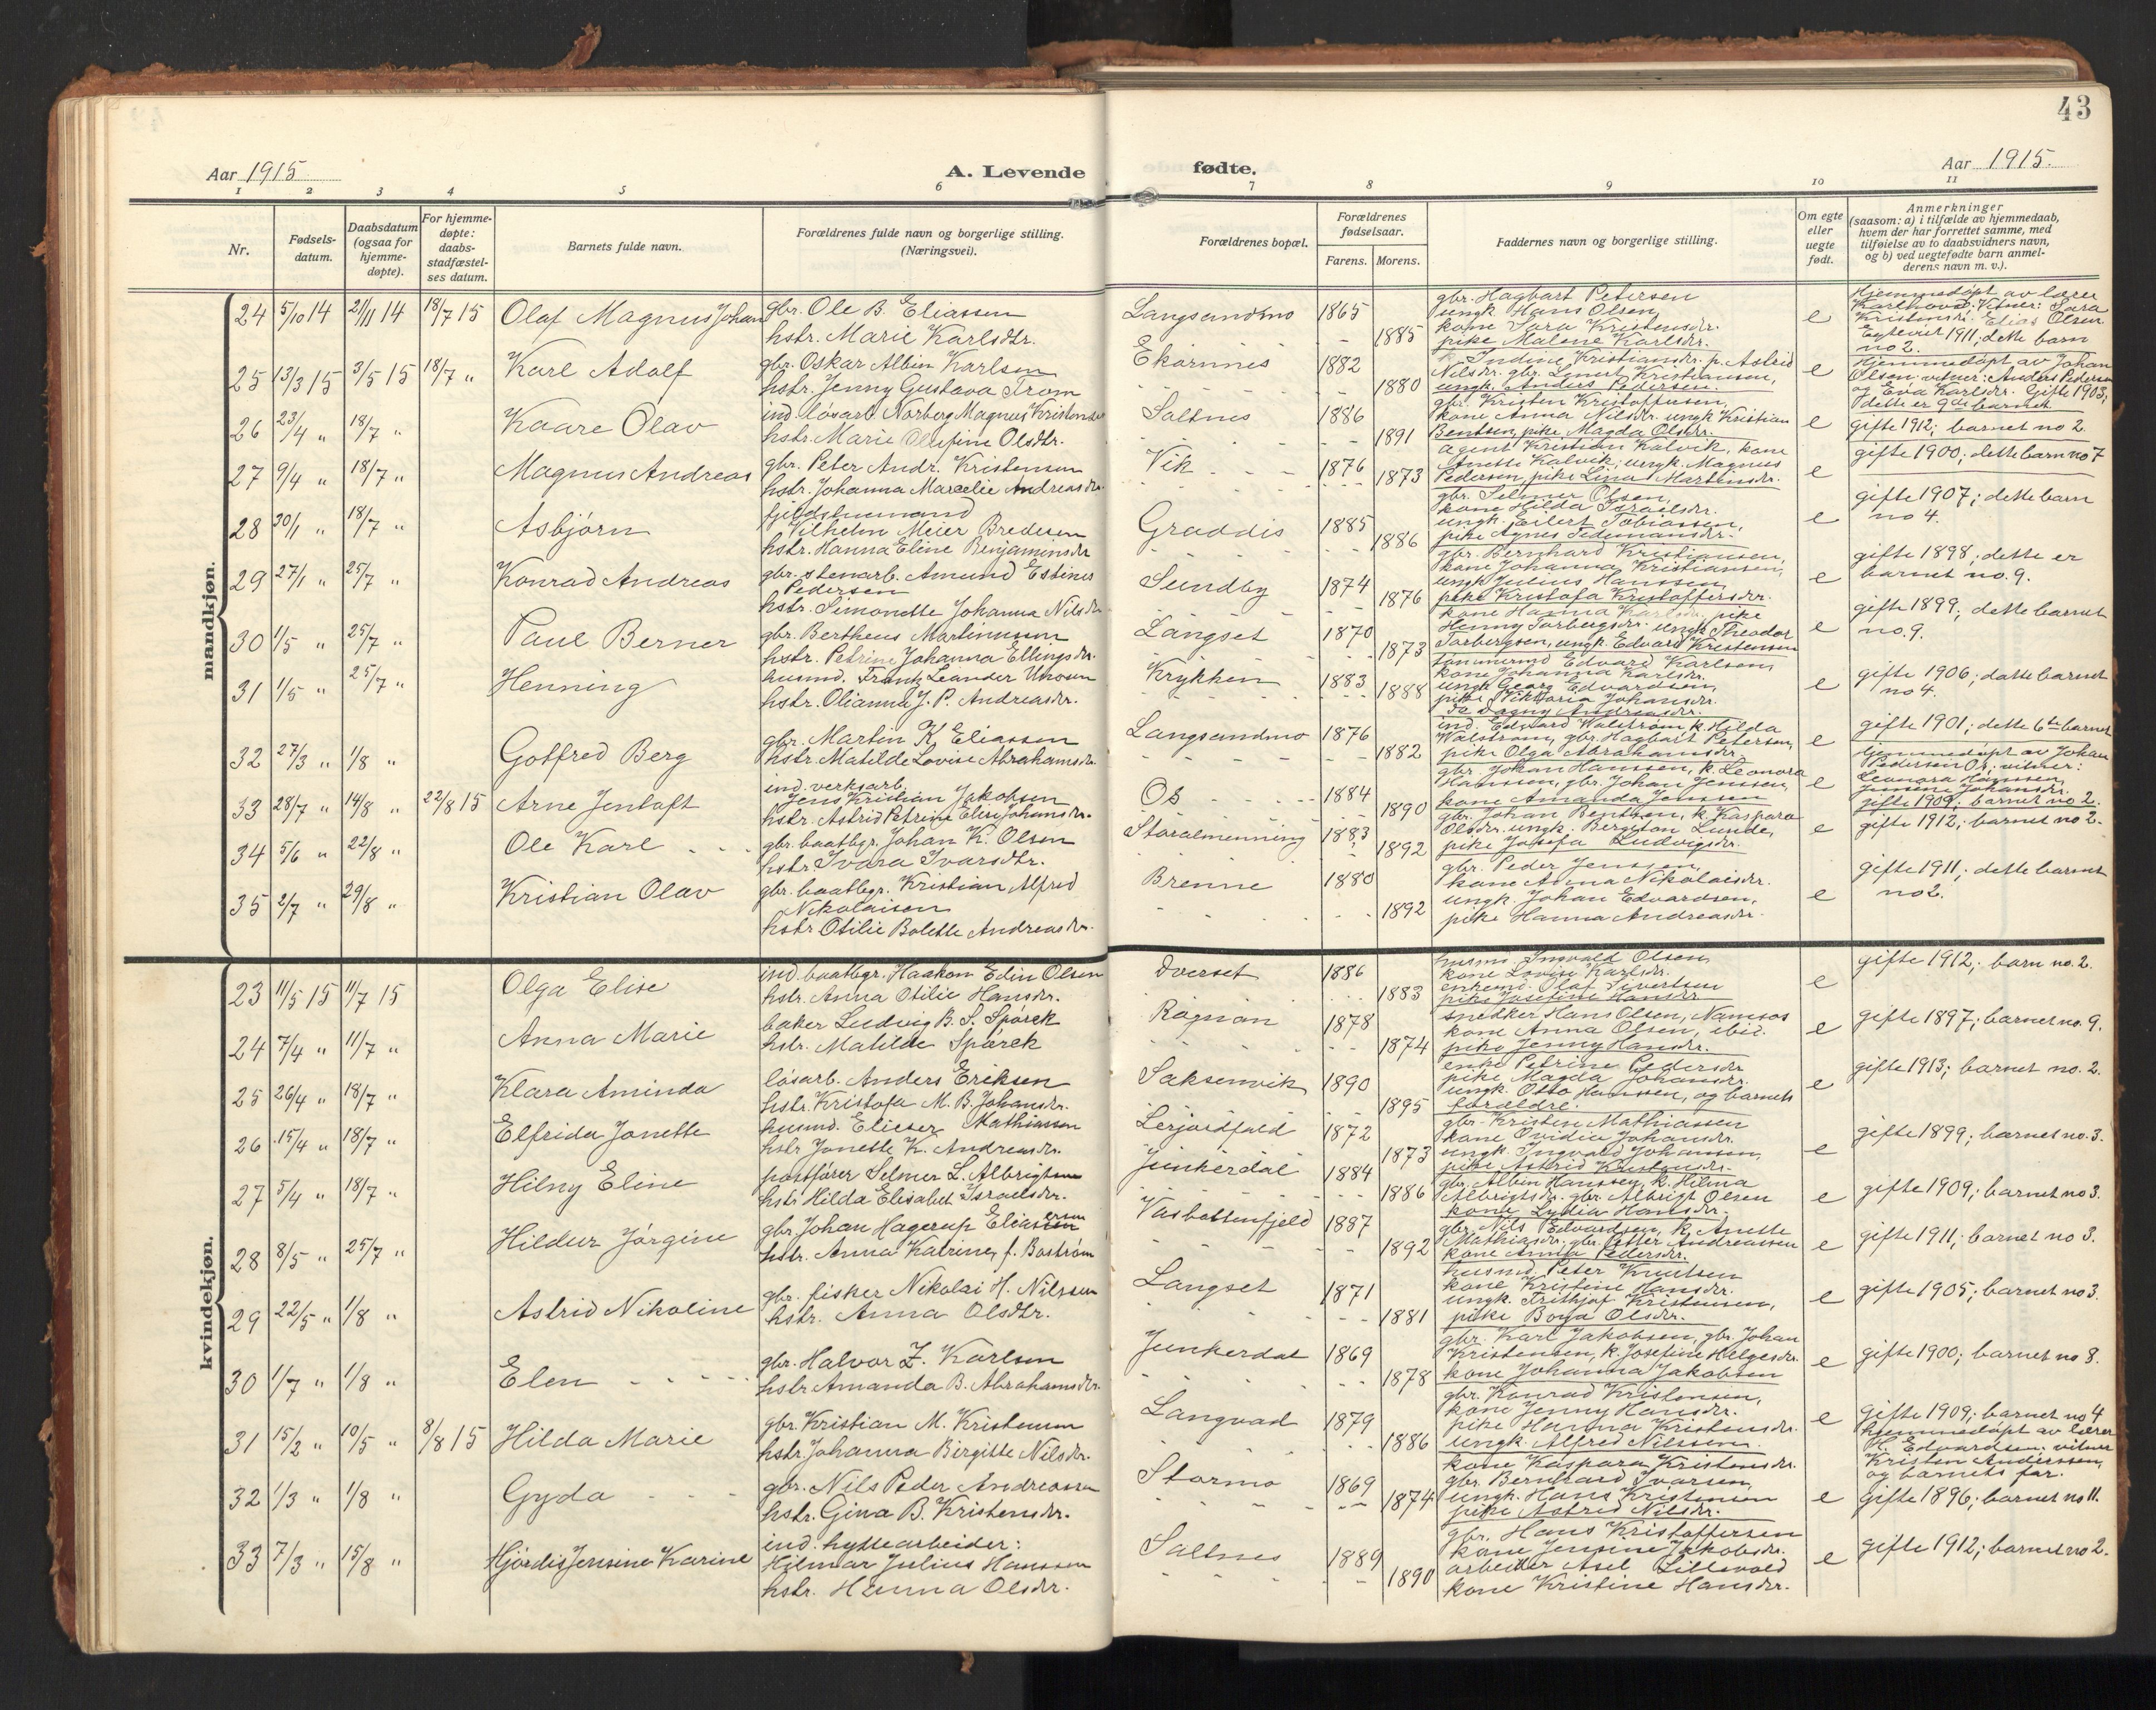 43
Aar 1915
A. Levende
fødte.
Aar 1915.
1 2 3 4 5 6 7 8 9 10 11
Nr.
Fødsels-
datum.
Daabsdatum
(ogsaa for
hjemme-
døpte).
For hjemme-
døpte:
daabs-
stadfæstel-
ses datum.
Barnets fulde navn.
Forældrenes fulde navn og borgerlige stilling.
(Næringsvei).
Forældrenes bopæl.
Forældrenes
fødselsaar.
Farens. Morens.
Faddernes navn og borgerlige stilling.
Om egte
eller
uegte
født.
Anmerkninger
(saasom: a) i tilfælde av hjemmedaab,
hvem der har forrettet samme, med
tilføielse av to daabsvidners navn,
og b) ved uegtefødte barn anmel-
derens navn m. v.).
mandkjøn.
24 5/10 14 21/11 14 18/7 15 Olaf Magnus Johan
gbr. Ole B. Eliassen
hstr. Marie Karlsdtr.
Langsandmo 1865
1885
gbr. Hagbart Petersen
ungk Hans Olsen
kone Sara Kristensdr.
pike Malene Karlsdr.
e
Hjemmedøpt av lærer
Kristensdr. Elias Olsen
Egteviet 1911; dette barn
no 2.
25 13/3 15 3/5 15 18/7 " Karl Adolf
gbr. Oskar Albin Karlsen
hstr. Jenny Gustava Trom
Ekornnes 1882
1880
Indine Kristiansdr. p. Astrid
Nilsdr. gbr. Lenert Kristiansen,
ungk. Anders Pedersen.
e
Hjemmedøpt av Johan
Olsen. vitner: Anders Pedersen
og Eva Karlsdr. Gifte 1903;
dette er 9de barnet
26 23/4 " 18/7 " Kaare Olav
ind. løsarb. Norberg Magnus Kristensen
hstr. Marie Olufine Olsdtr.
Saltnes 1886
1891
gbr. Kristen Kristoffersen,
kone Anna Nilsdr. ungk Kristian
Bentsen, pike Magda Olsdr.
e
gifte 1912; barnet no 2.
27 9/4 " 18/7 " Magnus Andreas
gbr. Peter Andr. Kristensen
hstr. Johanna Marcelie Andreasdr.
Vik 1876
1873
agent Kristian Kalvik, kone
Anette Kalvik; ungk. Magnus
Pedersen, pike Lina Martinsdr.
e
gifte 1900; dette barn no 7
28 20/1 " 18/7 " Asbjørn
fjeldstuemand
Vilhelm Meier Bredesen
hstr. Hanna Eline Benjaminsdr
Graddis 1885
1886
gbr. Selmer Olsen,
kone Hilda Israelsdr.
ungk. Eilert Tobiassen,
pike Agnes Tedemansdr.
e
gifte 1907; dette barn
no 4.
29 27/1 " 25/7 " Konrad Andreas
gbr. stenarb. Amund Estinus
Pedersen
hstr. Simonette Johanna Nilsdr
Sundby 1874
1876
gbr. Bernhard Kristiansen,
kone Johanna Kristiansen,
ungk Julius Hanssen,
pike Kristofa Kristoffersdr.
e
gifte 1898; dette er
barnet no. 9.
30 1/5 " 25/7 " Paul Berner
gbr. Bertheus Martinussen
hstr. Petrine Johanna Ellingsdr.
Langset 1870
1873
kone Hanna Karlsdr, pike
Henny Torbergsdr. ungk Theodor
Torbergsen, ungk. Edvard Kristensen
e
gifte 1899; dette barnet
no. 9.
31 1/5 " 25/7 " Henning
husmd. Frantz Leander
hstr. Olianna J. P. Andreasdr.
Krykken 1883
1888
tømmermd Edvard Karlsen,
kone Johanna Karlsdr.
ungk Georg Edvardsen,
pike Viktoria Johansdr.
Dagny Andreasdr.
e
gifte 1906; dette barnet
no 4.
32 27/3 " 1/8 " Gotfred Berg
gbr. Martin K. Eliassen
hstr. Matilde Lovise Abrahamsdr.
Langsandmo 1876
1882
ind. Edvard Walstrøm k. Hilda
Walstrøm, gbr. Hagbart Petersen,
pike Olga Abrahamsdr.
e
gifte 1901; dette 6te barnet
33 28/7 " 14/8 " 22/8 15 Arne Jentoft
ind. verksarb.
Jens Kristian Jakobsen
hstr. Astrid Petrine Elise Johansdr.
Os 1884
1890
gbr. Johan Hanssen, k. Leonora
Hanssen, gbr. Johan Jenssen,
kone Amanda Jenssen
e
hjemmedøpt av Johan
Pedersen Os; vitner:
Leonora Hanssen,
Jensine Johansdr.
gifte 1909; barnet no 2.
34 5/6 " 22/8 " Ole Karl
gbr. baatbgr. Johan K. Olsen
hstr. Ivara Ivarsdtr.
Storalmenning 1883
1892
gbr. Johan Benthsen, k. Kaspara
Olsdr. ungk. Bergiton Lunde,
pike Josefa Ludvigsdr.
e
gifte 1912; barnet no 2.
35 2/7 " 29/8 " Kristian Olav
gbr. baatbgr. Kristian Alfred
Nikolaisen
hstr Otilie Bolette Andreasdr.
Brenne 1880
1892
gbr. Peder Jenssen,
kone Anna Nikolaisdr.
ungk. Johan Edvardsen,
pike Hanna Andreasdr.
e
gifte 1911; dette barnet
no 2.
kvindekjøn.
23 11/5 15 11/7 15 Olga Elise
ind. baatbgr. Haakon Edin Olsen
hstr. Anna Otilie Hansdr.
Dverset 1886
1883
husmd. Ingvald Olsen,
kone Lovise Karlsdr.
enkemd. Olaf Sivertsen
pike Josefine Hansdr.
e
gifte 1912; barn no. 2.
24 7/4 " 11/7 " Anna Marie
baker Ludvig B. S. Spørck
hstr. Matilde Spørck
Rognan 1878
1874
snedker Hans Olsen, Namsos
kone Anna Olsen, ibid.
pike Jenny Hansdr.
e
gifte 1897; barnet no. 9.
25 26/4 " 18/7 " Klara Aminda
løsarb. Anders Eriksen
hstr. Kristofa M. B. Johansdr.
Saksenvik 1890
1895
enke Petrine Pedersdr
pike Magda Johansdr.
ungk. Otto Hanssen, og barnets
forældre.
e
gifte 1913; barnet no. 2.
26 15/4 " 18/7 " Elfrida Jonette
husmd. Elieser Mathiassen
hstr Jonette K. Andreasdr.
1872
1873
gbr. Kristen Mathiassen
kone Ovidia Johansdr.
ungk. Ingvald Johansen,
pike Astrid Kristensdr.
e
gifte 1899; barnet no. 3.
27 5/4 " 18/7 " Hilny Eline
postfører Selmer L. Albrigtsen
hstr Hilda Elisabet Israelsdr.
Junkerdal 1884
1886
gbr. Albin Hanssen, k. Hilma
Albrigtsdr. gbr. Albrigt Olsen
kone Lydia Hansdr.
e
gifte 1909; barnet no 3.
28 8/5 " 25/7 " Hildur Jørgine
gbr. Johan Hagerup Eliassen
hstr. Anna Katrine, f. Bostrøm
Vasbottenfjeld 1887
1892
gbr. Nils Edvardsen, k. Anette
Mathiasdr. gbr. Petter Andreassen
kone Anna Pedersdr.
e
gifte 1911; barnet no 3.
29 22/5 " 1/8 " Astrid Nikoline
gbr. fisker Nikolai H. Nilssen
hstr. Anna Olsdtr.
Langset 1871
1881
husmd. Peter Knutsen
kone Kristine Hansdr.
ungk. Frithjof Kristensen,
pike Borja Olsdr.
e
gifte 1905; barnet no 3.
30 1/7 " 1/8 " Elen
gbr. Halvor Z. Karlsen
hstr Amanda B. Abrahamsdr.
Junkerdal 1869
1878
gbr. Karl Jakobsen, gbr. Johan
Kristensen, k. Josefine Helgesdr.
kone Johanna Jakobsen
e
gifte 1900; barnet no 8.
31 15/2 " 10/5 " 8/8 15 Hilda Marie
gbr. Kristian M. Kristensen
hstr. Johanna Birgitte Nilsdr.
Langvad 1879
1886
gbr. Konrad Kristensen,
kone Jenny Hansdr.
pike Hanna Kristensdr.
ungk. Alfred Nilssen
e
gifte 1909; barnet no 4
hjemmedøpt av lærer
H. Edvardsen; vitner
Kristen Anderssen,
og barnets far.
32 1/3 " 1/8 " Gyda
gbr. Nils Peder Andreassen
hstr. Gina B. Kristensdr.
Stormo 1869
1874
kone Kaspara Kristensdr.
gbr. Bernhard Ivarsen,
ungk. Hans Kristensen
pike Astrid Nilsdr.
e
gifte 1896; barnet no 11.
33 7/3 " 15/8 " Hjørdis Jensine Karine
ind. hyttearbeider:
Hilmar Julius Hanssen
hstr. Hanna Olsdr.
Saltnes 1889
1890
gbr. Hans Kristoffersen
kone Jensine Jakobsdr.
arbeider Axel Lillevold
kone Kristine Hansdr.
e
gifte 1912; barnet no 2.